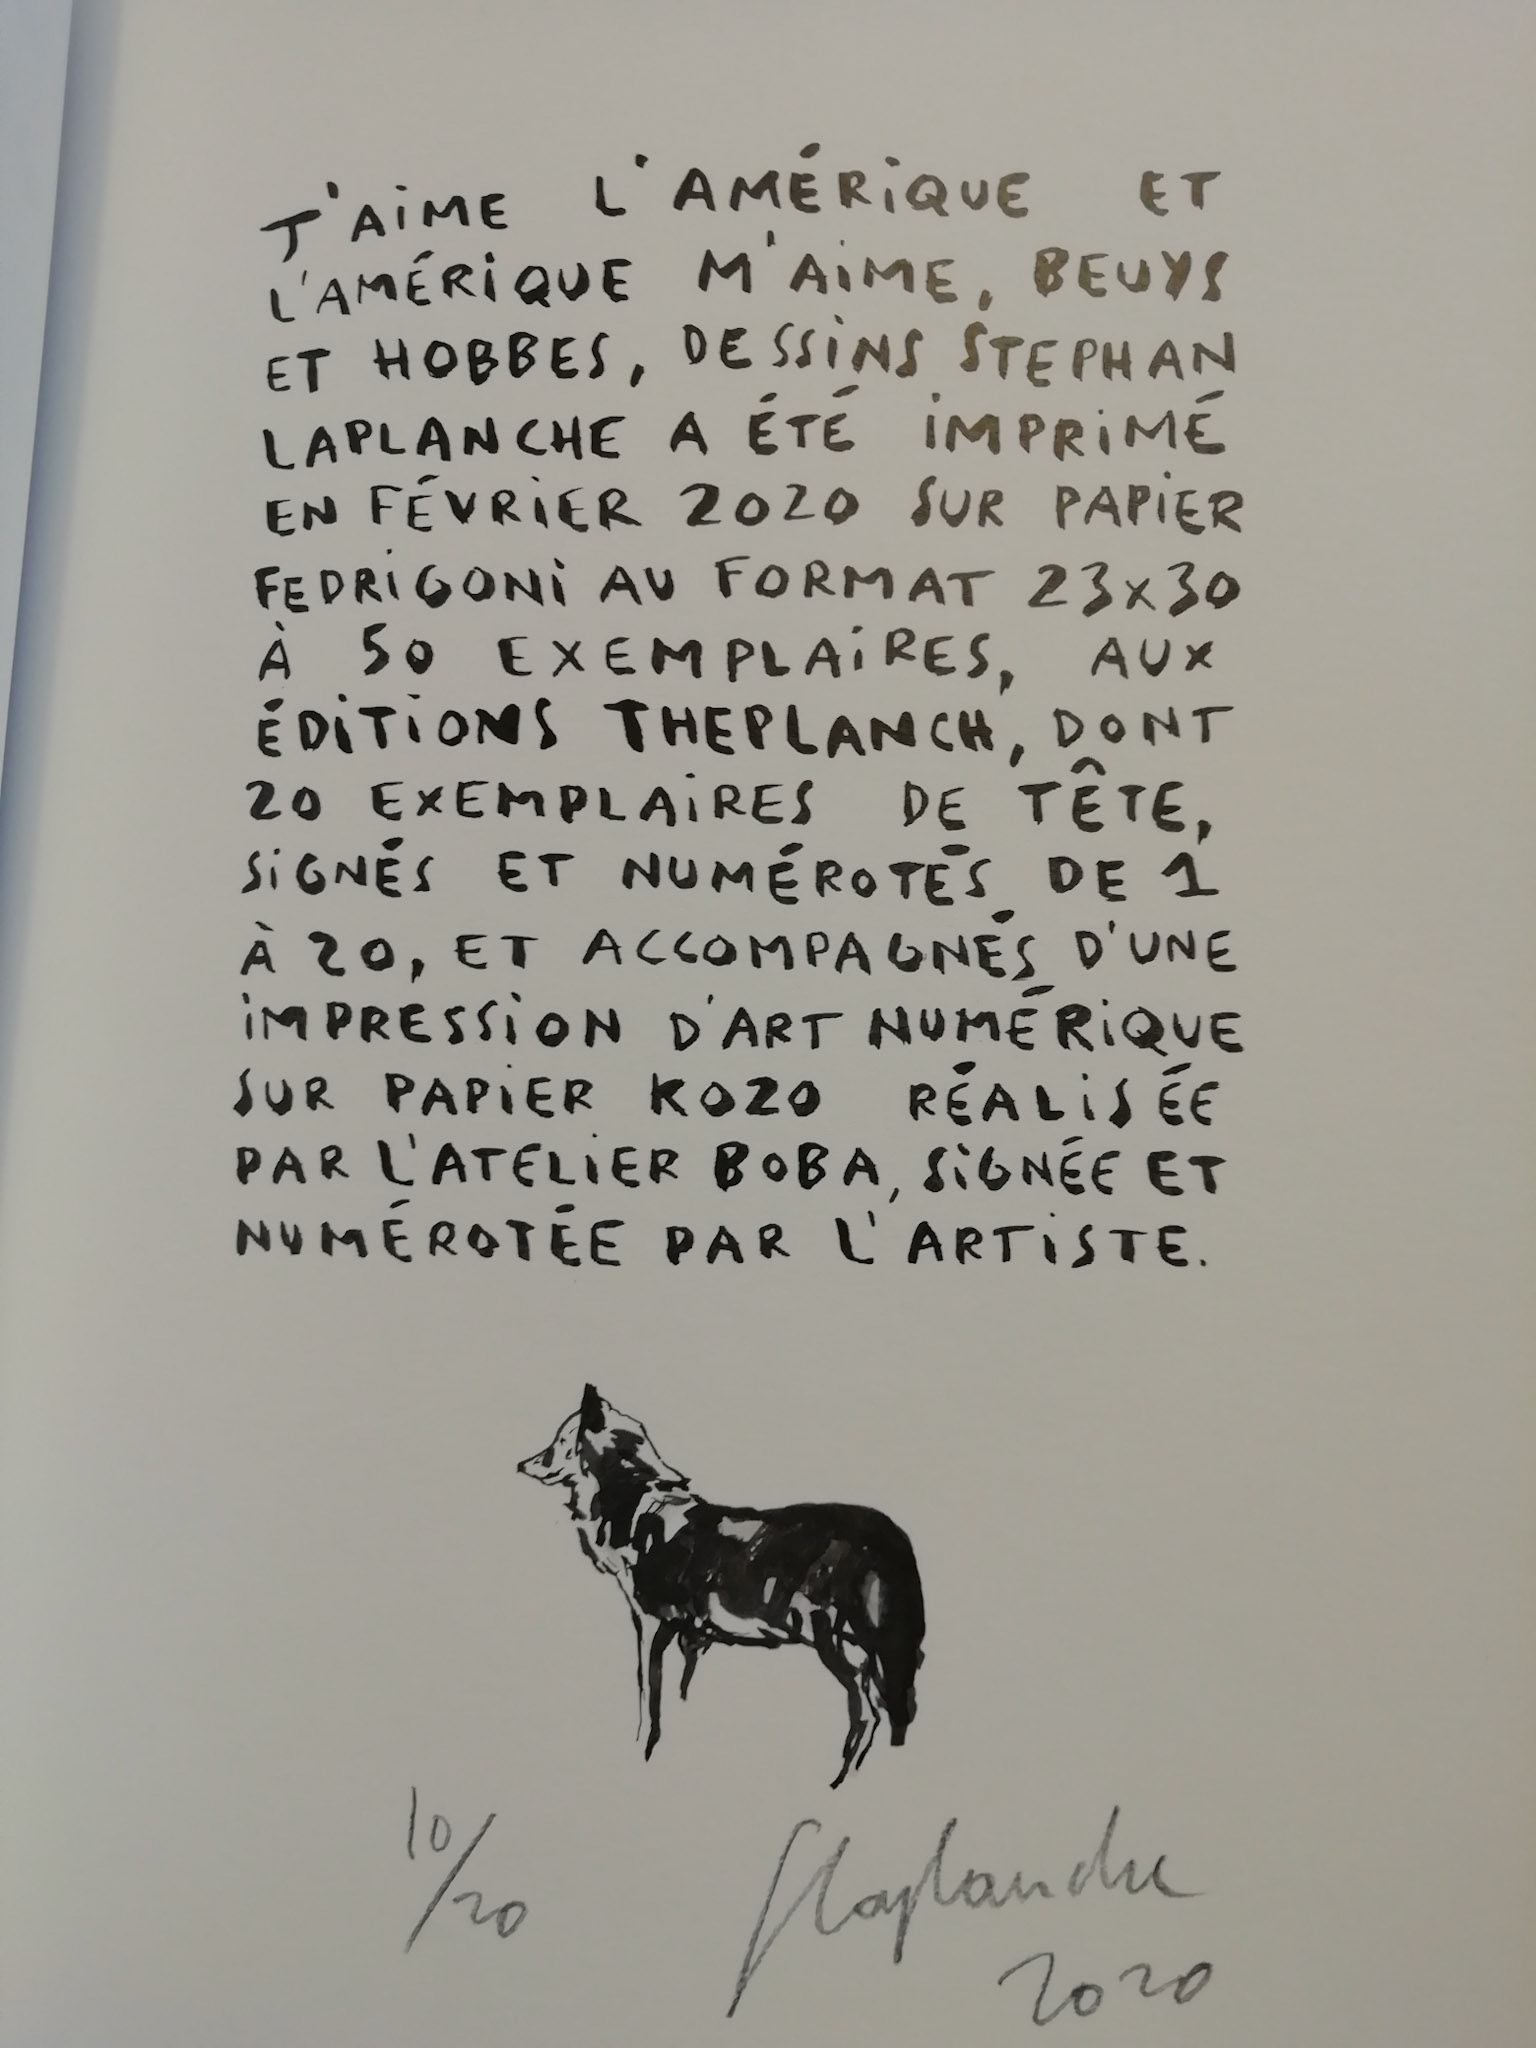 J'AIME L'AMÉRIQUE ET
L'AMÉRIQUE M'AIME, BEUYS
ET HOBBES, DESSINS STEPHAN
LAPLANCHE A ÉTÉ IMPRIMÉ
EN FÉVRIER 2020 SUR PAPIER
FEDRIGONI AU FORMAT 23x30
À 50 EXEMPLAIRES, AUX
ÉDITIONS THEPLANCH, DONT
20 EXEMPLAIRES DE TÊTE,
SIGNÉS ET NUMÉROTÉS DE 1
À 20, ET ACCOMPAGNÉS D'UNE
IMPRESSION D'ART NUMÉRIQUE
SUR PAPIER KOZO RÉALISÉE
PAR L'ATELIER BOBA, SIGNÉE ET
NUMÉROTÉE PAR L'ARTISTE.
10/20
SLaplanche
2020